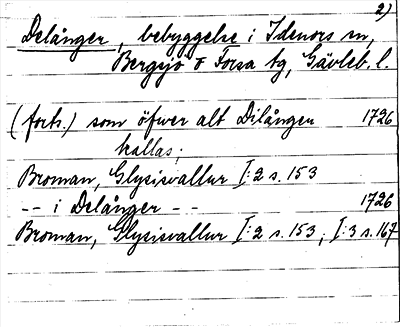 2)
Delånger, bebyggelse i Idenors sn,
Bergsjö o Forsa tg, Gävleb. l.
(forts.) som öfwer alt Dilången 1726
kallas;
Broman, Glysisvallur I:2 s. 153
-- i Delånger -- 1726
Broman, Glysisvallur I:2 s. 153; I:3 s. 167